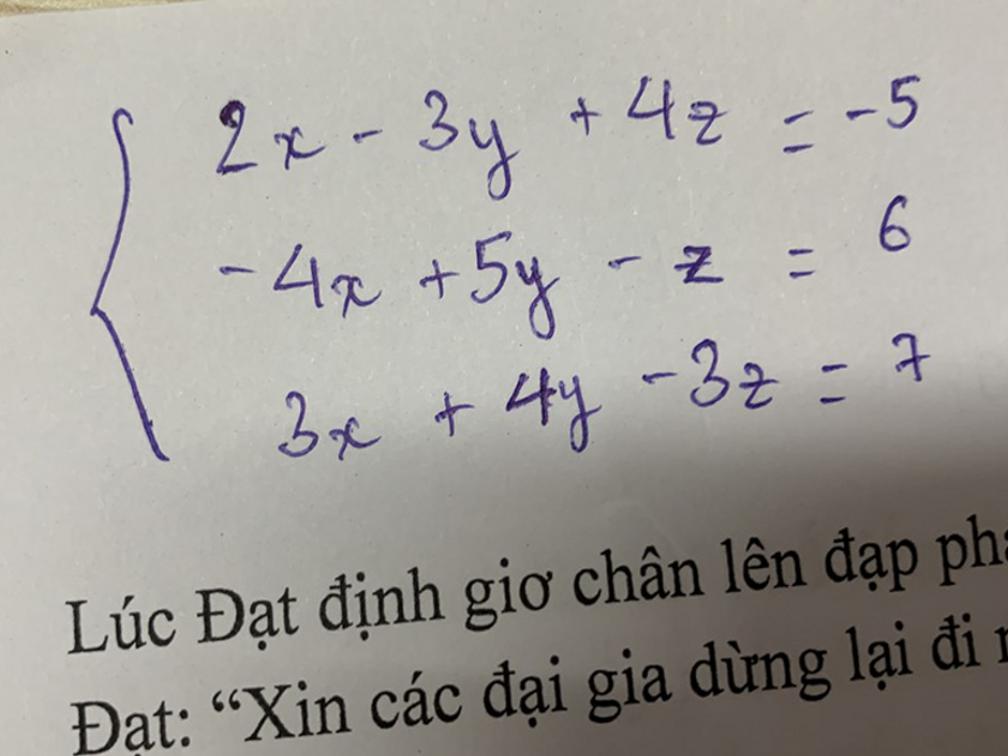 2x - 3y + 4z = -5
-4x + 5y - z = 6
3x + 4y - 3z = 7
Lúc Đạt định giơ chân lên đạp
Đạt: “Xin các đại gia dừng lại đi